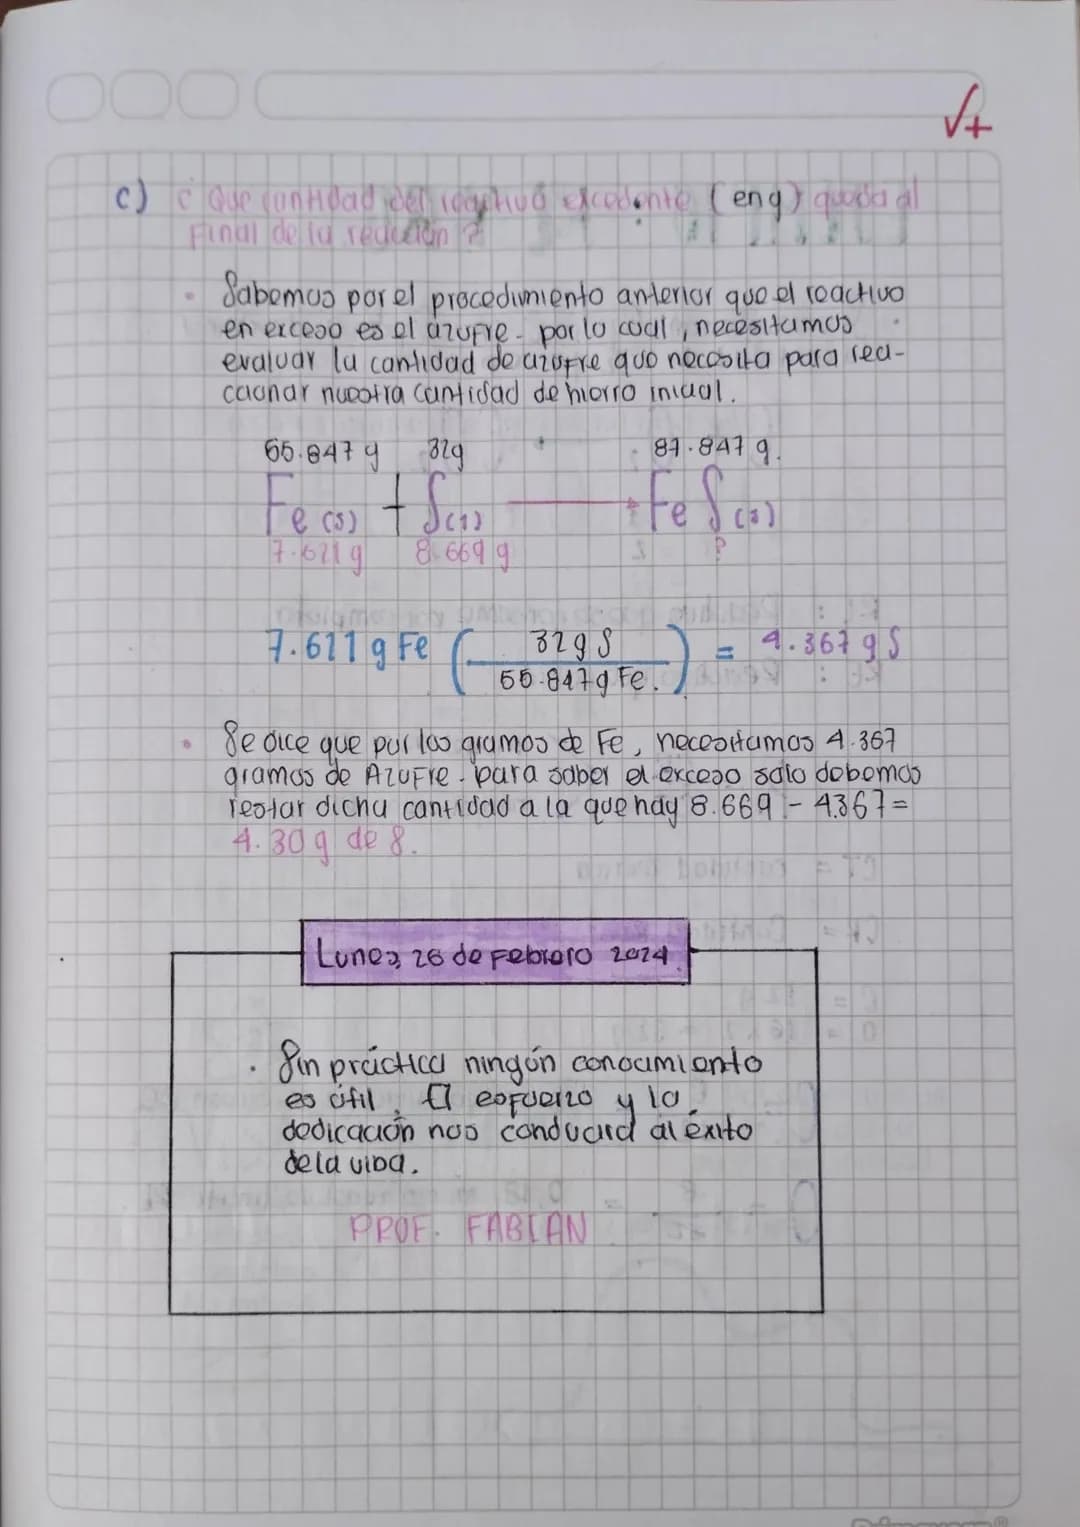 √+
c) ¿ Que cantidad del reactivo excedente (en g) queda al
Final de la reacción ?
• Sabemos por el procedimiento anterior que el reactivo
en exceso es el azufre - por lo cual , necesitamos
evaluar la cantidad de azufre que necesita para rea-
ccionar nuestra cantidad de hierro inicial.
55.847 g 32g 87.847 g.
Fe (s) + S(s) → Fe S(s)
7.621 g 8.669 g ?
7.611 g Fe ( 32g S / 55.847g Fe. ) = 4.367 g S
• Se dice que por los gramos de Fe, necesitamos 4.367
gramos de Azufre . para saber el exceso solo debemos
restar dicha cantidad a la que hay 8.669 - 4.367 =
4.30 g de S.
Lunes, 26 de Febrero 2024.
• Sin práctica ningún conocimiento
es útil, El esfuerzo y la
dedicación nos conducirá al éxito
de la vida.
PROF. FABIAN